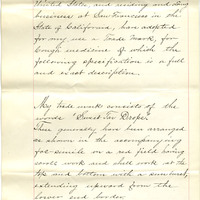 United States and residing and doing
business at San Francisco in the
State of California, has adopted
for my use a Trade Mark, for
Cough medicine of which the
following specification is a full
and exact description.
My trade mark consists of the
words "Sweet Tar Drops"
These generally have been arranged
as shown in the accompanying
fac-simile on a red field being
scroll work and shell work at the
top and bottom with a sun burst,
extending upward from the
lower end border